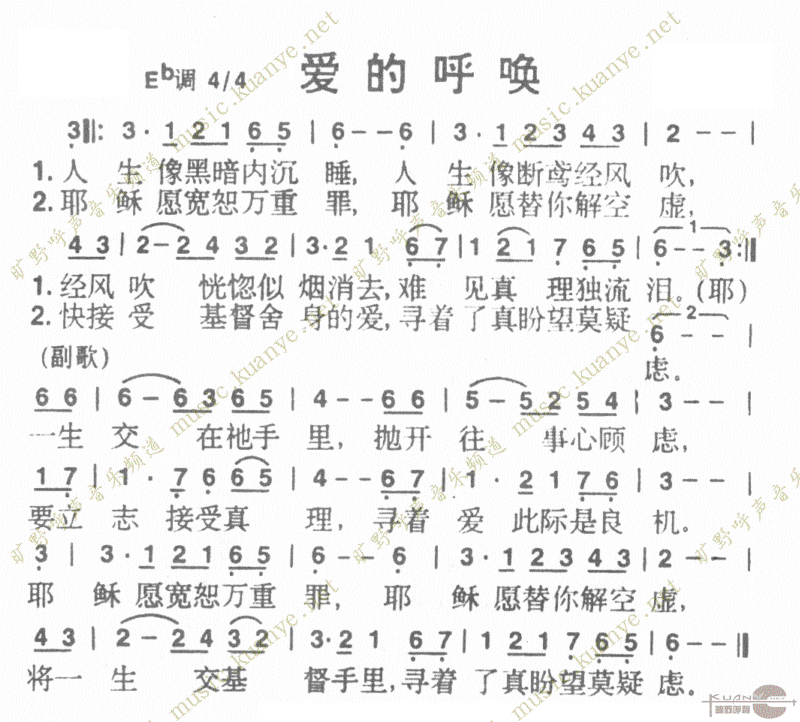 爱的呼唤
E♭调 4/4
3̣ ‖: 3 · 1 2 1 6̣ 5̣ | 6̣ - - 6̣ | 3 · 1 2 3 4 3 | 2 - -
1. 人 生 像黑暗内沉 睡, 人 生 像断鸢经风 吹,
2. 耶 稣 愿宽恕万重 罪, 耶 稣 愿替你解空 虚,
4 3 | 2 - 2 4 3 2 | 3 · 2 1 6̣ 7̣ | 1 2 1 7̣ 6̣ 5̣ | 6̣ - - 3̣ :‖
1. 经风 吹 恍惚似 烟消去, 难 见真 理独流 泪。(耶)
2. 快接 受 基督舍 身的爱, 寻着 了真盼望莫疑
6̣ - -
(副歌) 虑。
6 6 | 6 - 6 3 6 5 | 4 - - 6 6 | 5 - 5 2 5 4 | 3 - -
一生 交 在祂手 里, 抛开 往 事心顾 虑,
1 7̣ | 1 · 7̣ 6 6 5 | 4 - - 6̣ 7̣ | 1 · 2 1 7̣ 6̣ | 3 - -
要立 志 接受真 理, 寻着 爱 此际是良 机。
3̣ | 3 · 1 2 1 6̣ 5̣ | 6̣ - - 6̣ | 3 · 1 2 3 4 3 | 2 - -
耶 稣 愿宽恕万重 罪, 耶 稣 愿替你解空 虚,
4 3 | 2 - 2 4 3 2 | 3 · 2 1 6̣ 7̣ | 1 2 1 7̣ 6̣ 5̣ | 6̣ - - ‖
将一 生 交基 督手里, 寻着 了真盼望莫疑 虑。
旷野呼声音乐频道 music.kuanye.net
KUANYE
旷野呼声